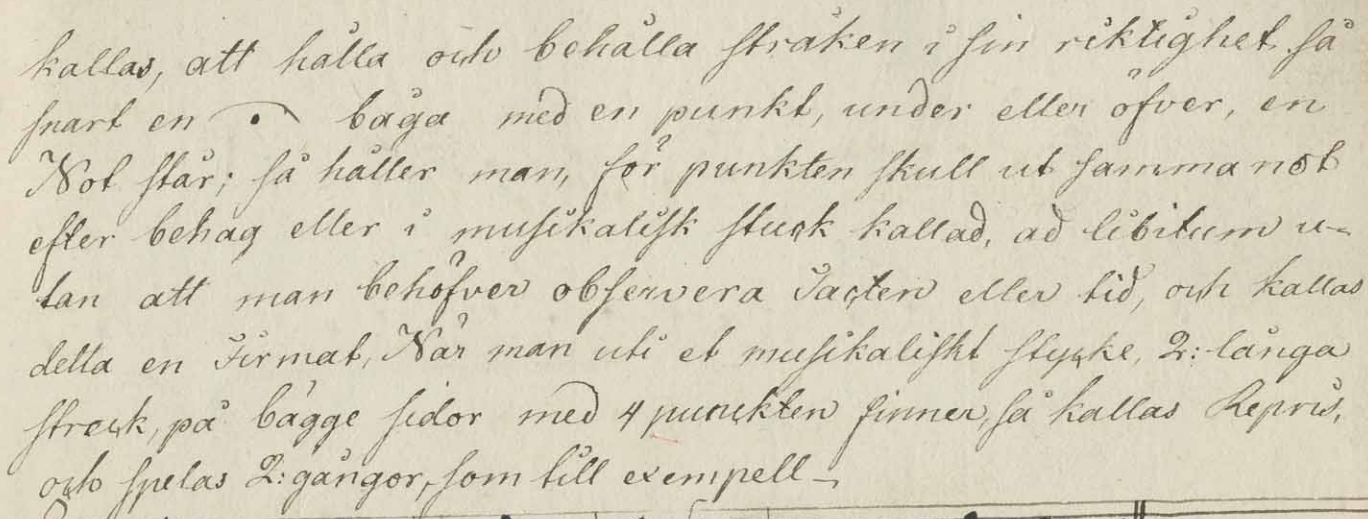 kallas, att hålla och behålla stråken i sin riktighet så
snart en båga med en punkt, under eller öfver, en
Not står; så håller man, för punkten skull ut samma not
efter behag eller i musikalisk stuck kallad, ad libitum u-
tan att man behöfver observera Tacten eller tid, och kallas
detta en Firmat, När man uti et musikaliskt stycke, 2: långa
streck, på bägge sidor med 4 punckten finner, så kallas Repris,
och spelas 2: gångor, som till exempell -